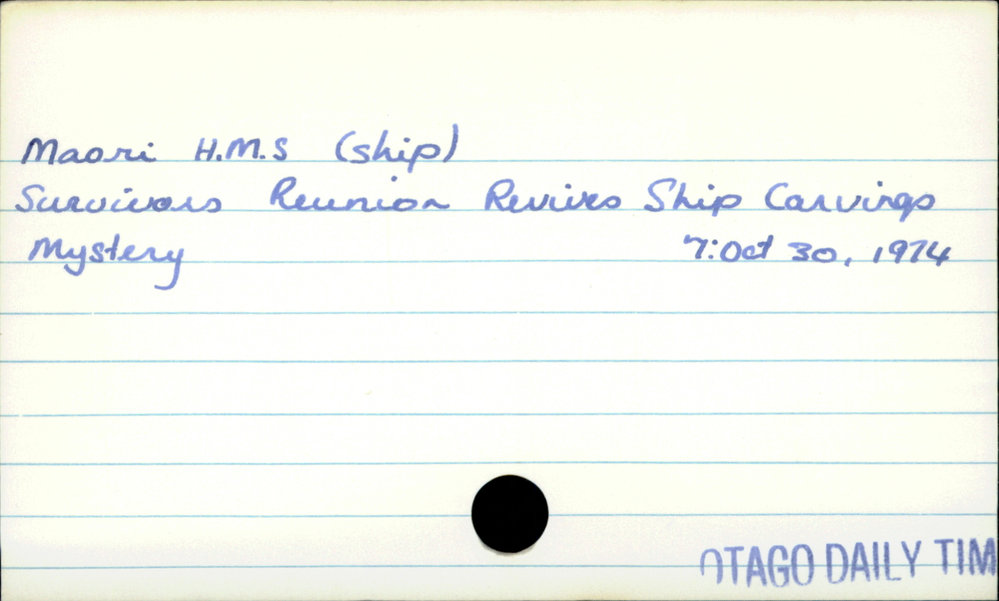 Maori H.M.S (ship)
Survivors Reunion Revives Ship Carvings
Mystery 7:Oct 30, 1974
OTAGO DAILY TIM